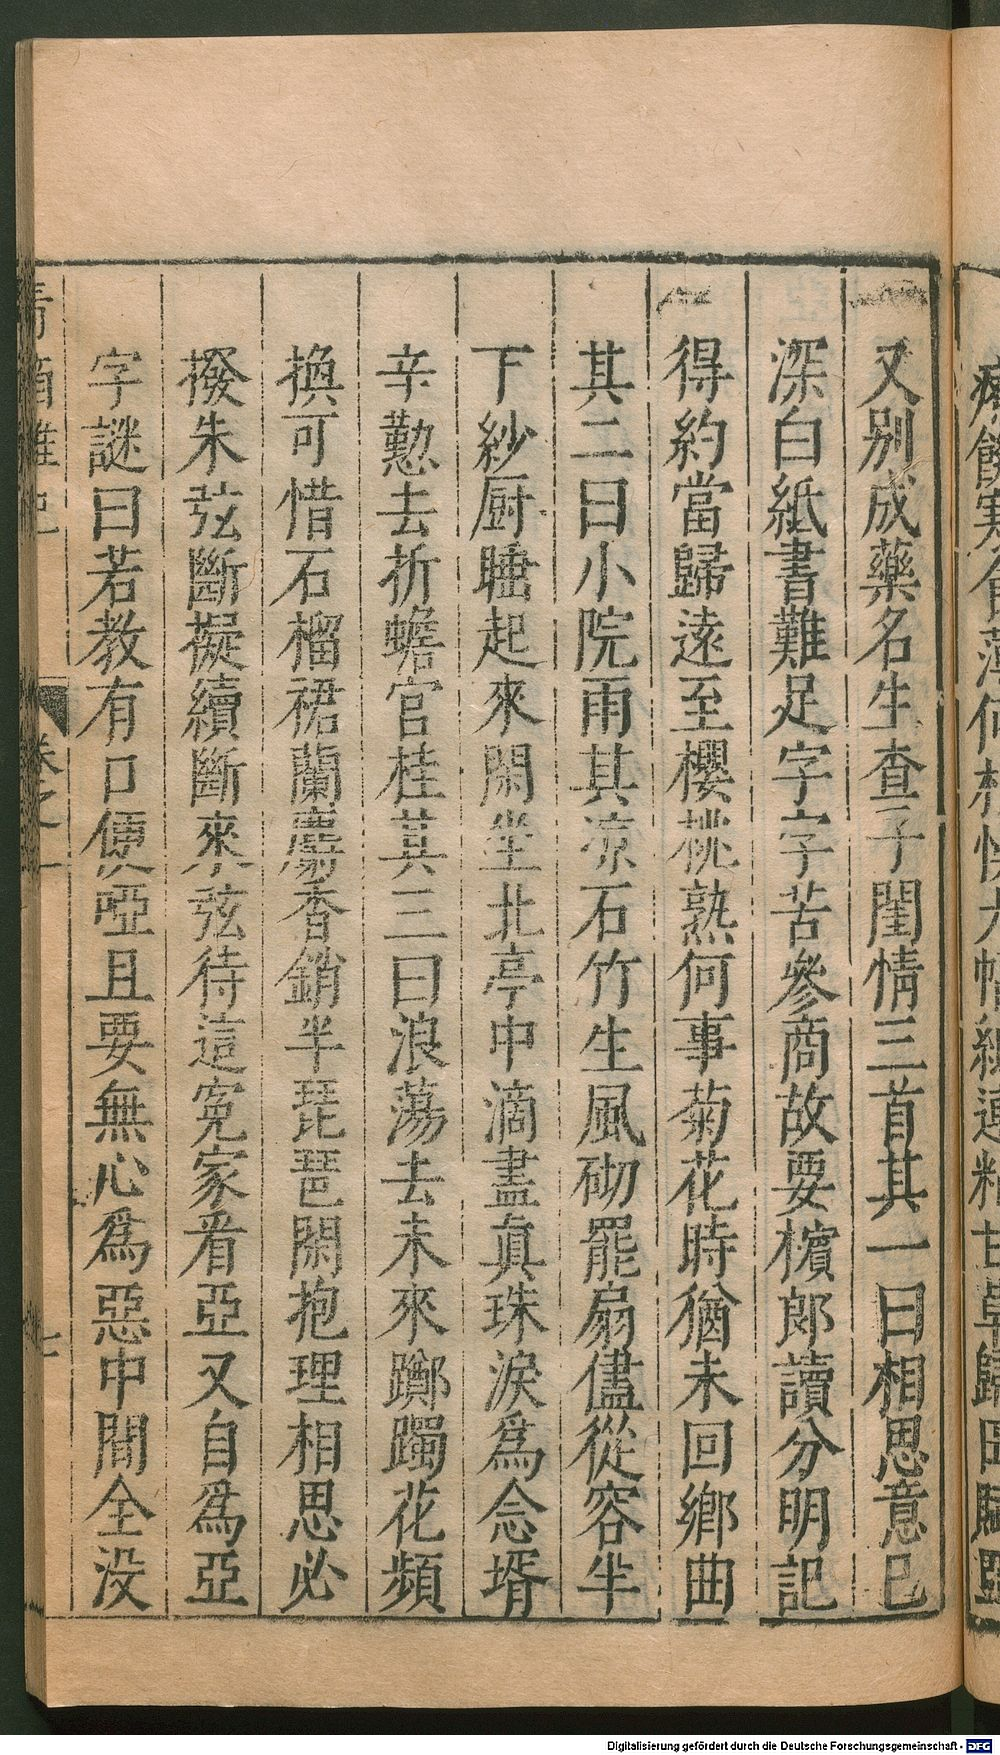 又別成藥名生查子閨情三首其一曰相思意已
深白紙書難足字字苦參商故要檳郎讀分明記
得約當歸遠至櫻桃熟何事菊花時猶未回鄉曲
其二曰小院雨其凉石竹生風砌罷扇儘從容半
下紗厨睡起來閑坐北亭中滴盡眞珠淚爲念壻
辛勤去折蟾宫桂其三曰浪蕩去未來躑躅花頻
換可惜石榴裙蘭麝香銷半琵琶閑抱理相思必
撥朱弦斷擬續斷來弦待這寃家看亞又自爲亞
字謎曰若教有口便啞且要無心爲惡中間全没
卷之一
七
Digitalisierung gefördert durch die Deutsche Forschungsgemeinschaft - DFG